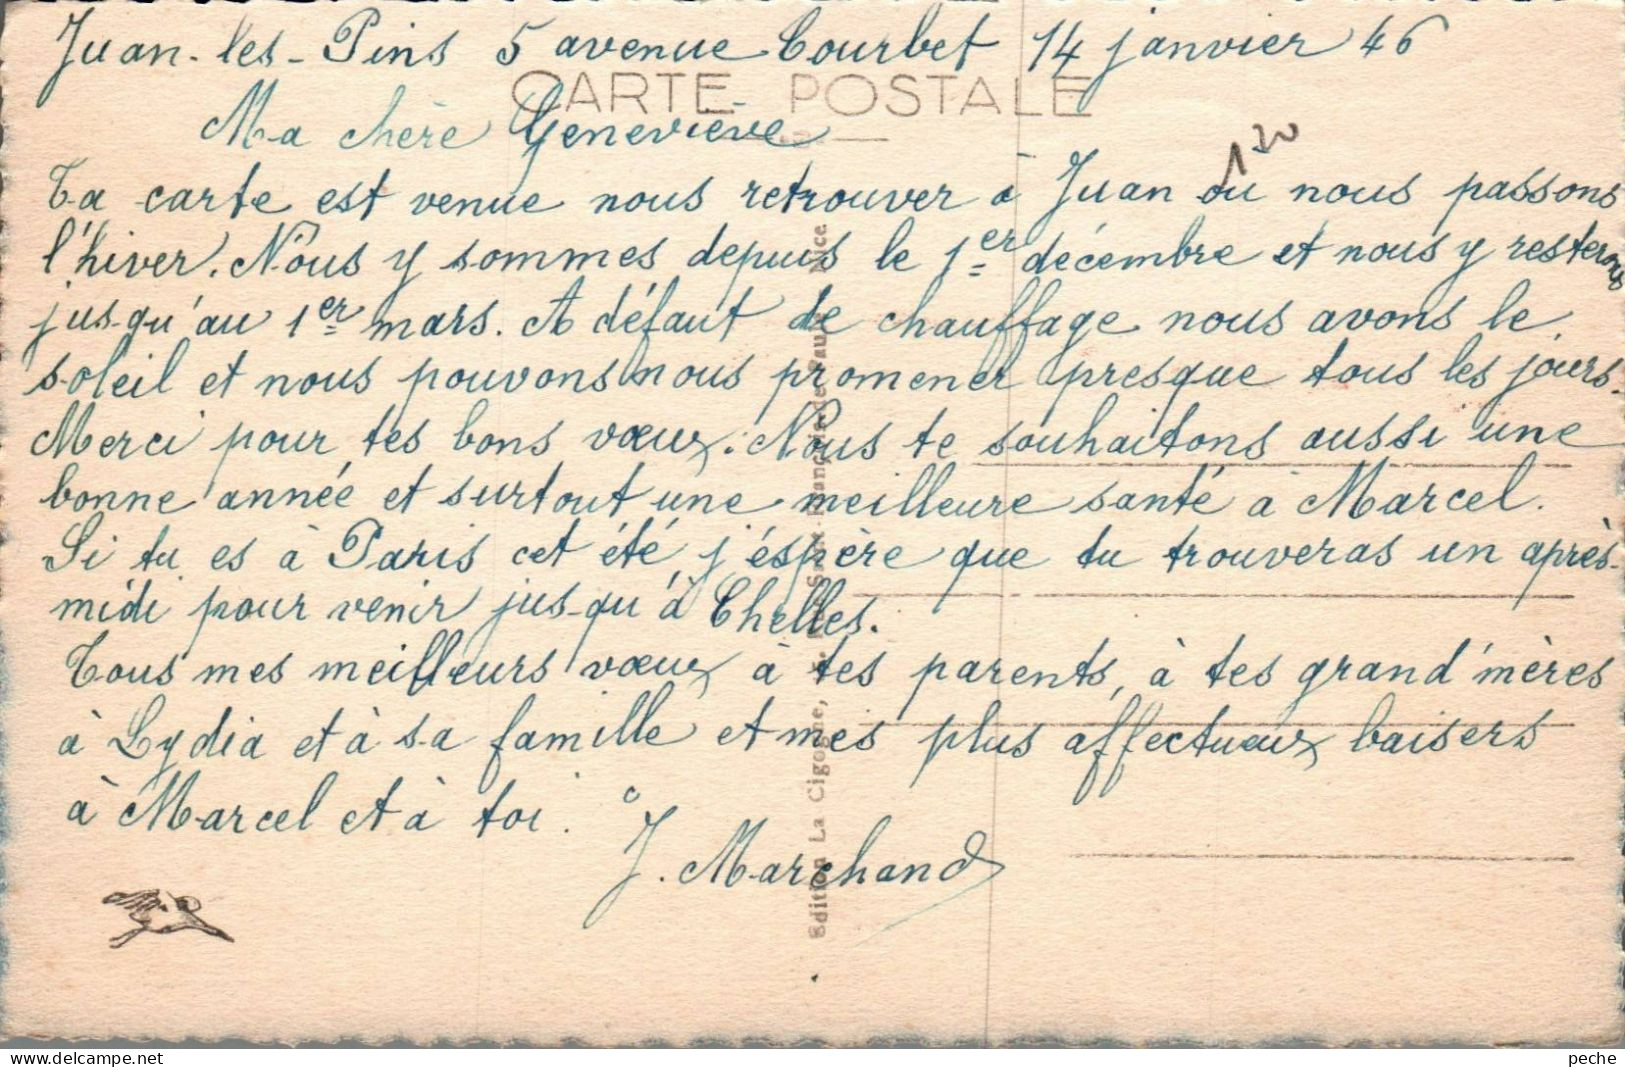 Juan-les-Pins 5 avenue Courbet 14 janvier 46
CARTE POSTALE
Ma chère Geneviève
Ta carte est venue nous retrouver à Juan où nous passons
l'hiver. Nous y sommes depuis le 1er décembre et nous y resterons
jusqu'au 1er mars. A défaut de chauffage nous avons le
soleil et nous pouvons nous promener presque tous les jours.
Merci pour tes bons vœux. Nous te souhaitons aussi une
bonne année et surtout une meilleure santé à Marcel.
Si tu es à Paris cet été, j'éspère que tu trouveras un après-
midi pour venir jusqu'à Chelles.
Tous mes meilleurs vœux à tes parents, à tes grand'mères
à Lydia et à sa famille et mes plus affectueux baisers
à Marcel et à toi.
J. Marchand
Edition La Cigogne, Nice
peche